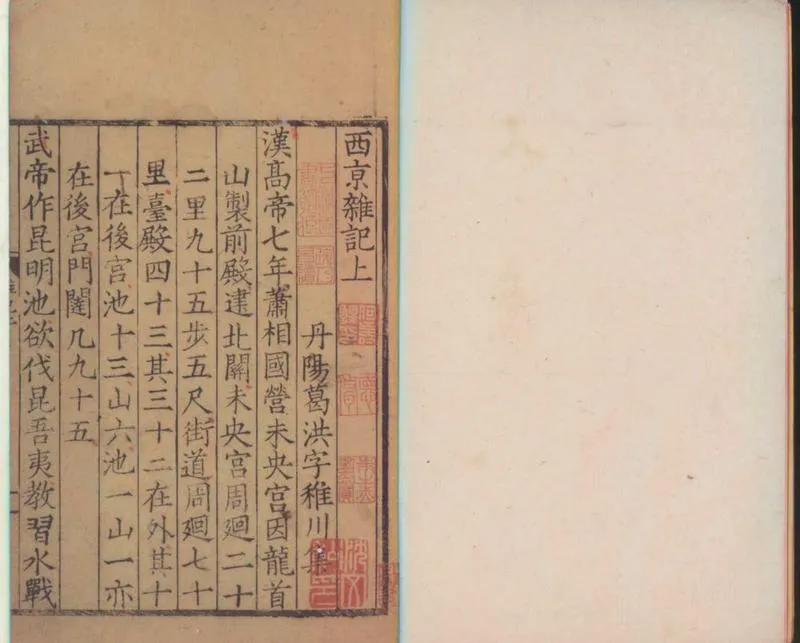 西京雜記上
丹陽葛洪字稚川集
漢髙帝七年蕭相國營未央宫因龍首
山製前殿建北闕未央宫周廻二十
二里九十五步五尺街道周廻七十
里臺殿四十三其三十二在外其十
一在後宫池十三山六池一山一亦
在後宫門闥凡九十五
武帝作昆明池欲伐昆吾夷教習水戰